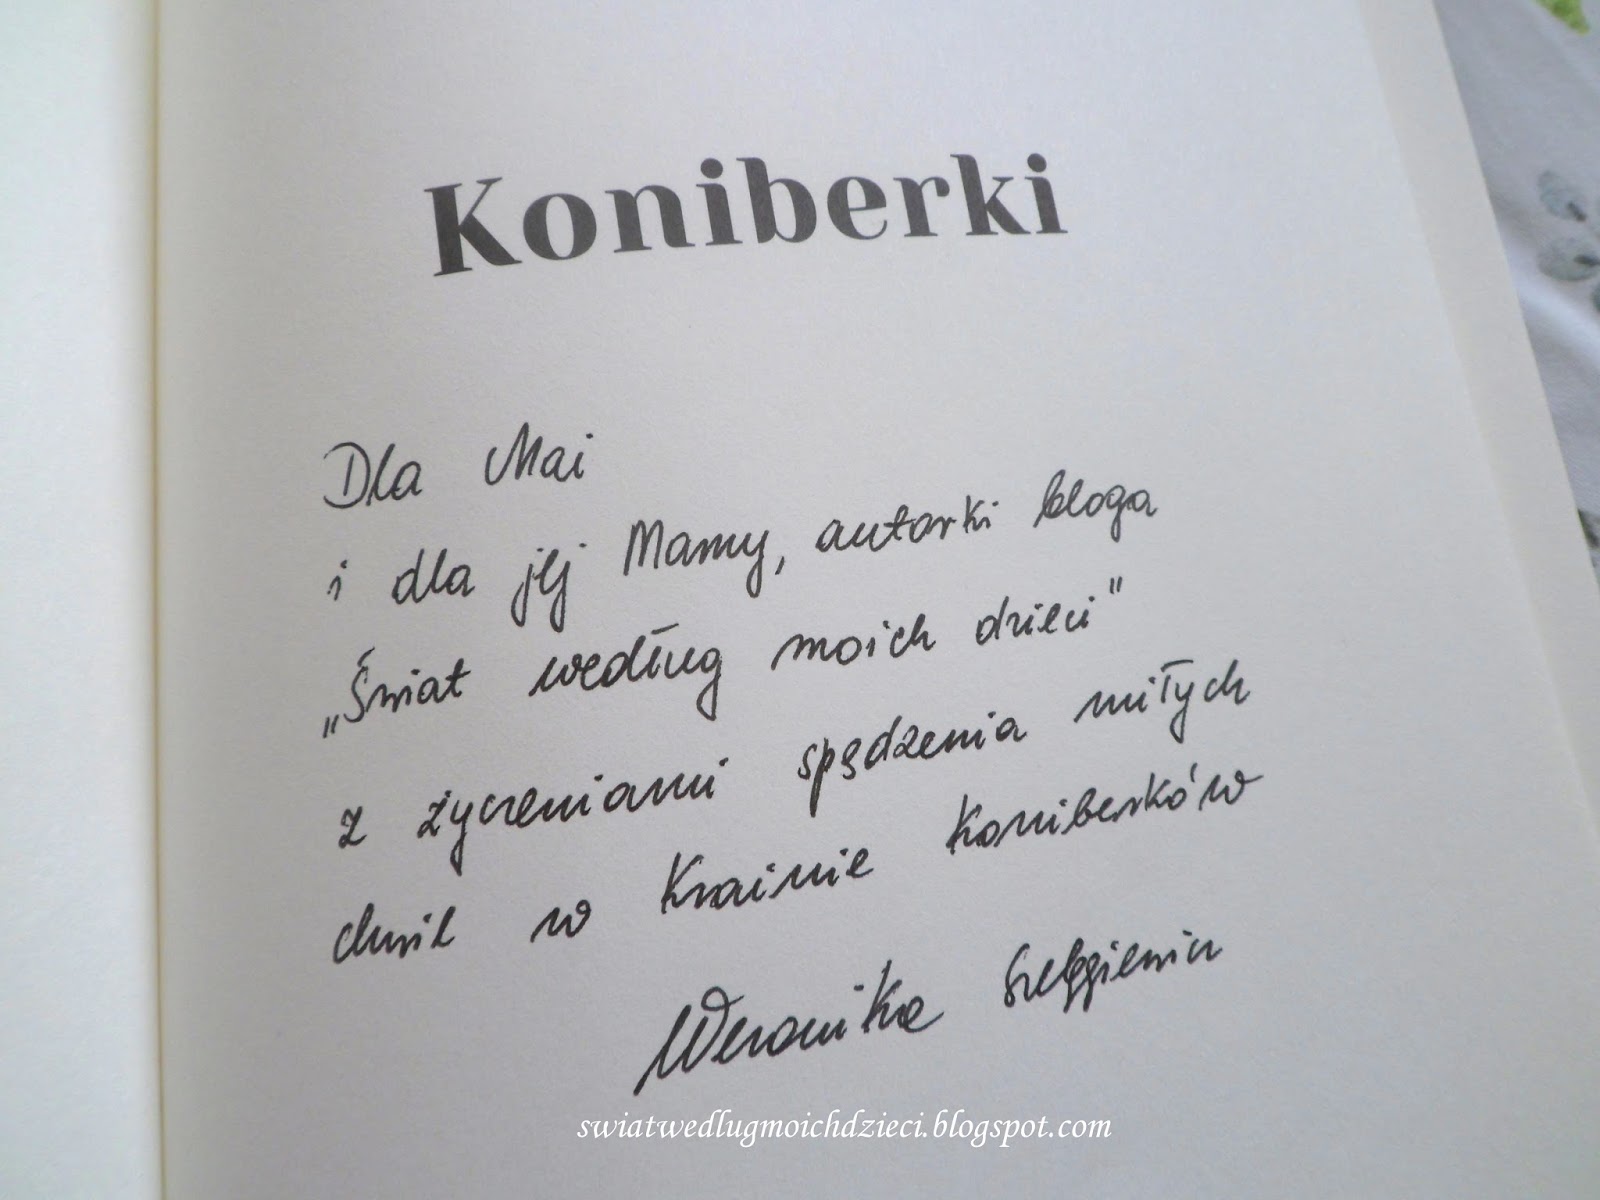 Koniberki
Dla Mai
i dla jej Mamy, autorki bloga
„Świat według moich dzieci"
z życzeniami spędzenia miłych
chwil w Krainie Koniberków
Weronika Szelęgieniec
swiatwedlugmoichdzieci.blogspot.com